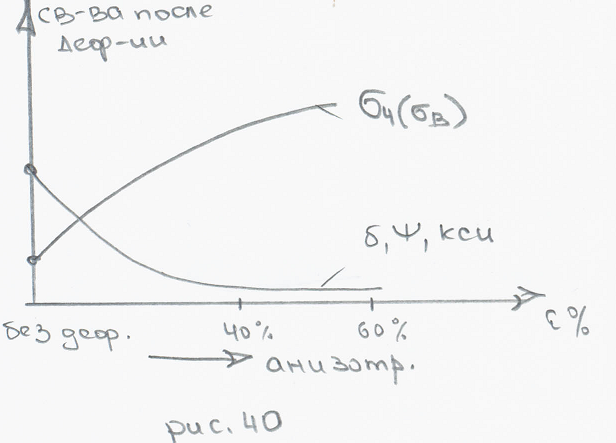 св-ва после
деф-ии
σч(σв)
δ, ψ, кси
без деф. 40% 60% ε%
анизотр.
рис. 40